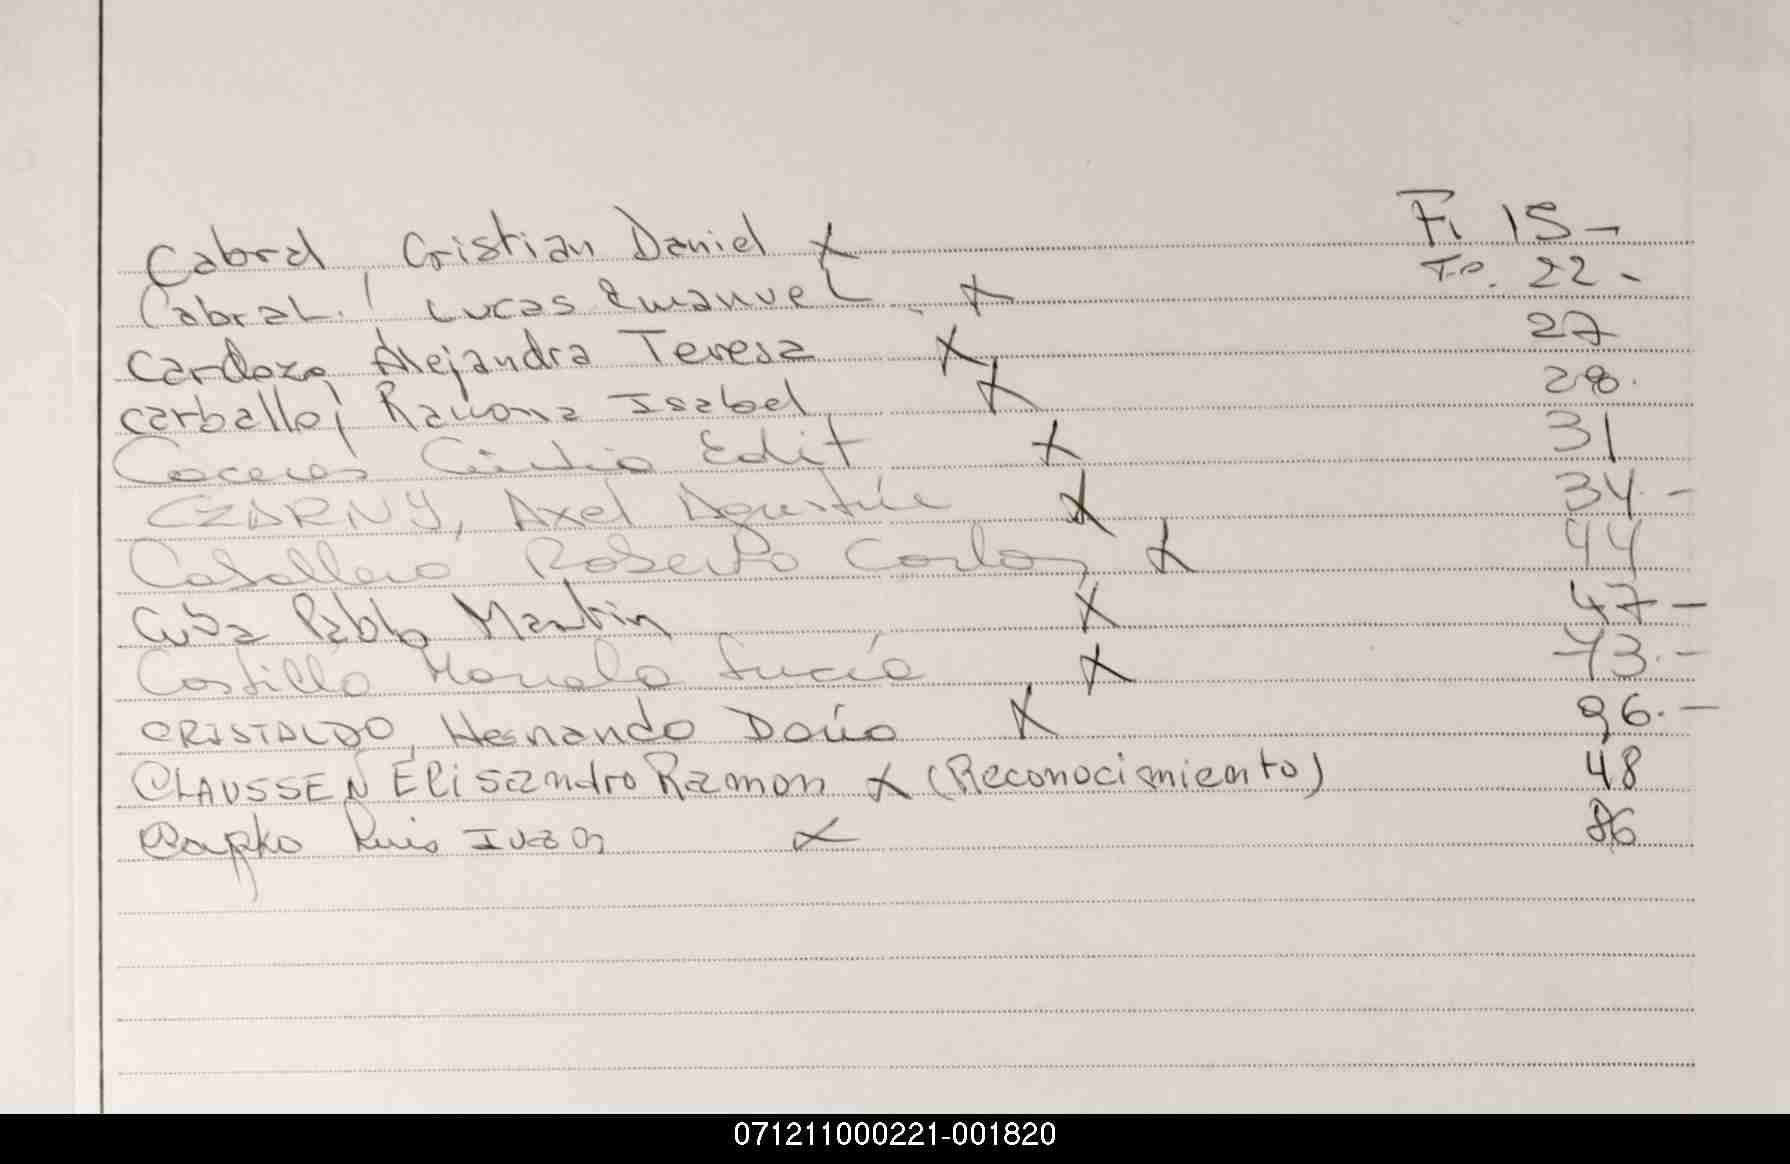 Cabral, Cristian Daniel X Fi 15-
Cabral, Lucas Emanuel X To. 22-
Cardozo, Alejandra Teresa X 27
Carballo, Ramona Isabel X 28.
Caceres Edit X 31
CZARNY, Axel Agustín X 34.-
Caballero Roberto Carlos X 44
Cuba Pablo Martin X 47-
Costillo Lucía X 73.-
CRISTALDO, Hernando Darío X 96.-
CLAUSSEN Elisandro Ramon X (Reconocimiento) 48
Luis Ivan X 86
071211000221-001820